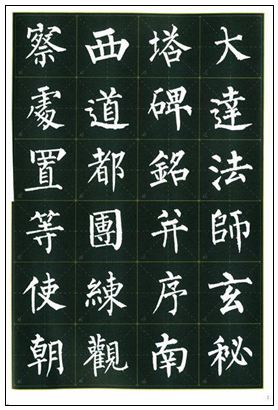 大達法師玄秘
塔碑銘并序南
西道都團練觀
察處置等使朝